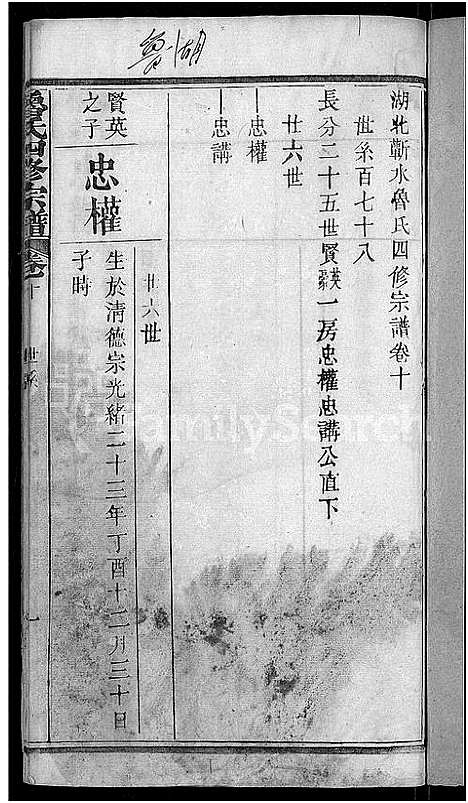 魯湖
湖北蘄水魯氏四修宗譜卷十
世系百七十八
長分二十五世賢英賢一房忠權忠講公直下
廿六世
忠權
忠講
廿六世
賢英之子
忠權
生於清德宗光緒二十三年丁酉十二月三十日
子時
魯氏四修宗譜
卷十
世系
一
FamilySearch